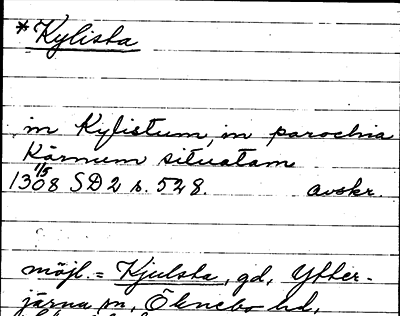 *Kylista
in Kylistum, in parochia
Kärnum situatam
1308 1/5 SD 2 s. 528. avskr.
möjl. = Kjulsta, gd, Ytter-
järna sn, Öknebo hd,